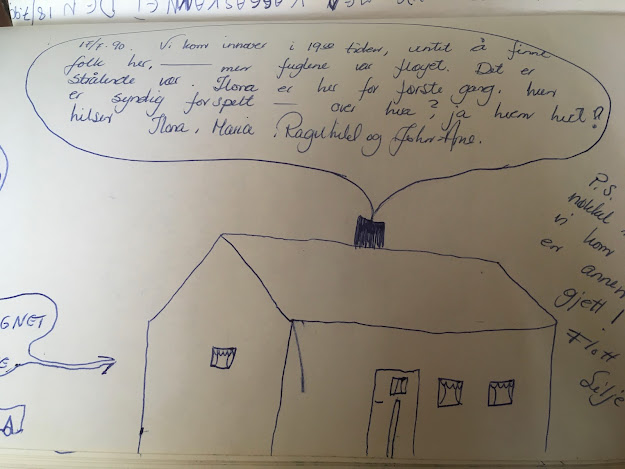 DEN 18/7-90
17/7-90. Vi kom innover i 1930 tiden, until å finne
folk her, —— men fuglene var fløyet. Det er
strålende vær. Ilona er her for første gang. hun
er syndig forspelt — over hva?, ja hvem vet?
hilser Ilona, Maria, Ragnhild og John-Arne.
P.S.
nøkkel
vi kom
en annen
gjett!
Flott
Silje
GNET
E
A